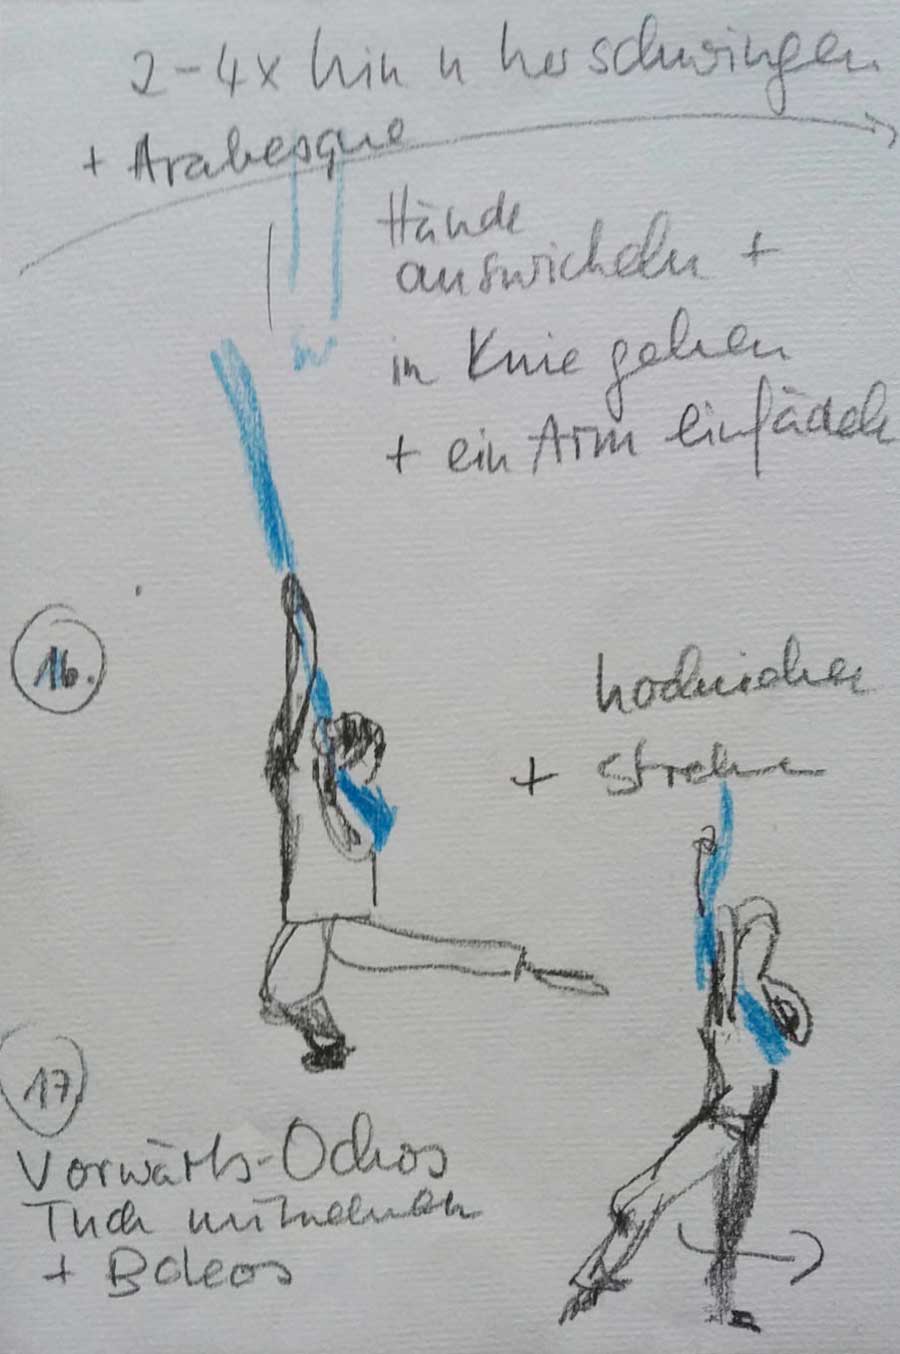 2-4x hin u her schwingen
+ Arabesque
Hände
auswickeln +
in Knie gehen
+ ein Arm einfädeln
16.
hochziehen
+ Strecken
17.
Vorwärts-Ochos
Tuch mitnehmen
+ Boleos